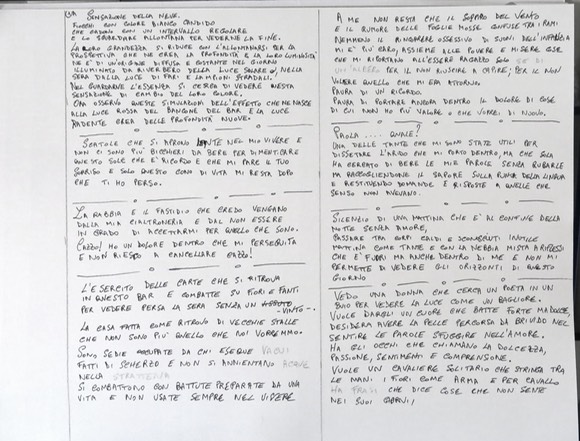 LA SENSAZIONE DELLA NEVE.
FIOCCHI CON COLORE BIANCO CANDIDO
CHE CADONO CON UN INTERVALLO REGOLARE
E LO SGUARDARE ALLONTANA PER VEDERNE LA FINE.
LA LORO GRANDEZZA SI RIDUCE CON L'ALLONTANARSI PER LA
PROSPETTIVA CHE NE CREA LA PROFONDITÀ E LA LORO LUMINOSITÀ
NE È DI UN'ORIGINE DIFFUSA E COSTANTE NEL GIORNO
ILLUMINATO DA RIVERBERO DELLA LUCE SOLARE O, NELLA
SERA DALLA LUCE DI FARI E LAMPIONI STRADALI.
NEL GUARDARVE L'ESSENZA SI CERCA DI VEDERE QUESTA
SENSAZIONE DI CAMBIO DEL LORO COLORE,
ORA OSSERVO QUESTE SIMULAZIONI DELL'EFFETTO CHE NE NASCE
ALLA LUCE ROSSA DEL BANCONE DEL BAR E LA LUCE
RADENTE CREA DELLE PROFONDITÀ NUOVE.
SCATOLE CHE SI APRONO NEL MIO VIVERE E
NON CI SONO PIÙ BICCHIERI DA BERE PER DIMENTICARE
QUESTO SOLE CHE È RICORDO E CHE MI PARE IL TUO
SORRISO E SOLO QUESTO CONO DI VITA MI RESTA DOPO
CHE TI HO PERSO.
LA RABBIA E IL FASTIDIO CHE CREDO VENGANO
DALLA MIA CIALTRONERIA E DAL NON ESSERE
IN GRADO DI ACCETTARMI PER QUELLO CHE SONO.
CAZZO! HO UN DOLORE DENTRO CHE MI PERSEGUITA
E NON RIESCO A CANCELLARE CAZZO!
L'ESERCITO DELLE CARTE CHE SI RITROVA
IN QUESTO BAR E COMBATTE SU FIORI E FANTI
PER VEDERE PERSA LA SERA SENZA UN
-VINTO-.
LA CASA FATTA COME RITROVO DI VECCHIE STALLE
CHE NON SONO PIÙ QUELLO CHE NOI VORREMMO.
SONO SEDIE OCCUPATE DA CHI ESEGUE VACUI
FATTI DI SCHERZO E NON SI ANNIENTANO
NELLA
SI COMBATTONO CON BATTUTE PREPARATE DA UNA
VITA E NON USATE SEMPRE NEL VIVERE
A ME NON RESTA CHE IL SOFFIO DEL VENTO
E IL RUMORE DELLE FOGLIE MOSSE CONFUSE TRA I RAMI
NEMMENO IL RINCORRERE OSSESSIVO DI SUONI DELL'INFANZIA
MI E' PIÙ CARO, ASSIEME ALLE POVERE E MISERE COSE
CHE MI RIPORTANO ALL'ESSERE RAGAZZO SOLO
PER IL NON RIUSCIRE A CAPIRE; PER IL NON
VOLERE QUELLO CHE MI ERA ATTORNO.
PAURA DI UN RICORDO.
PAURA DI PORTARE ANCORA DENTRO IL DOLORE DI COSE
DI CUI NON HO PIÙ VALORE O CHE VORREI DI NUOVO.
PAOLA .... QUALE?
UNA DELLE TANTE CHE MI SONO STATE UTILI PER
DISSETARE L'ARIDO CHE MI PORTO DENTRO, MA CHE SOLA
HA CERCATO DI BERE LE MIE PAROLE SENZA RUBARLE
MA RACCOGLIENDONE IL SAPORE SULLA PUNTA DELLA LINGUA
E RESTITUENDO DOMANDE E RISPOSTE A QUELLE CHE
SENSO NON AVEVANO.
SILENZIO DI UNA MATTINA CHE È AL CONFINE DELLA
NOTTE SENZA AMORE,
PASSARE TRA CORPI CALDI E SCONOSCIUTI INUTILE
MATTINA COME TANTE E CON LA NEBBIA MISTA A RIFLESSI
CHE È FUORI MA ANCHE DENTRO DI ME E NON MI
PERMETTE DI VEDERE GLI ORIZZONTI DI QUESTO
GIORNO
VEDO UNA DONNA CHE CERCA UN POETA IN UN
BUIO PER VEDERE LA LUCE COME UN BAGLIORE.
VUOLE DARGLI UN CUORE CHE BATTE FORTE MA DOLCE,
DESIDERA AVERE LA PELLE PERCORSA DA BRIVIDO NEL
SENTIRE LE PAROLE SFUGGIRE NELL'AMORE.
HA GLI OCCHI CHE CHIAMANO LA DOLCEZZA,
PASSIONE, SENTIMENTI E COMPRENSIONE.
VUOLE UN CAVALIERE SOLITARIO CHE STRINGA TRA
LE MANI I FIORI COME ARMA E PER CAVALLO
HA FRASI CHE DICE COSE CHE NON SENTE
NEI SUOI